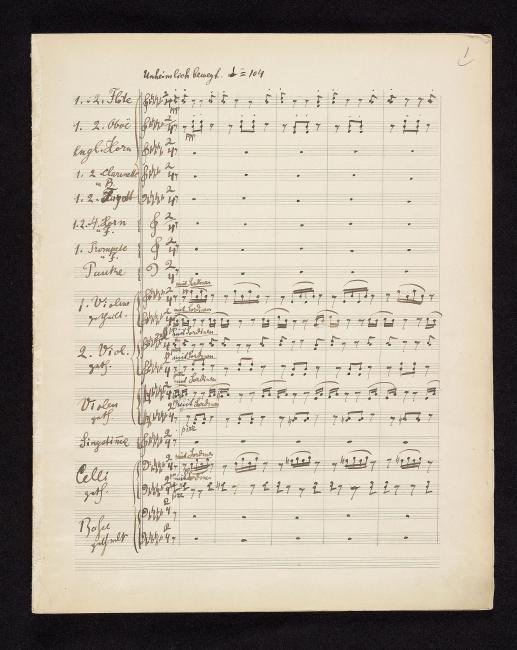 1
Unheimlich bewegt. ♩ = 104
1. u 2. Flöte
1. 2. Oboë
Engl. Horn
1. 2 Clarinette
in B
1. 2. Fagott
1. 2. 4. Horn
in F.
1. Trompete
in F.
Pauke
mit Sordinen
1. Violine
getheilt.
mit Sordinen
mit Sordinen
2. Viol.
geth.
mit Sordinen
mit Sordinen
Violen
geth.
mit Sordinen
Singstimme
mit Sordinen
Celli
geth.
mit Sordinen
Bässe
getheilt